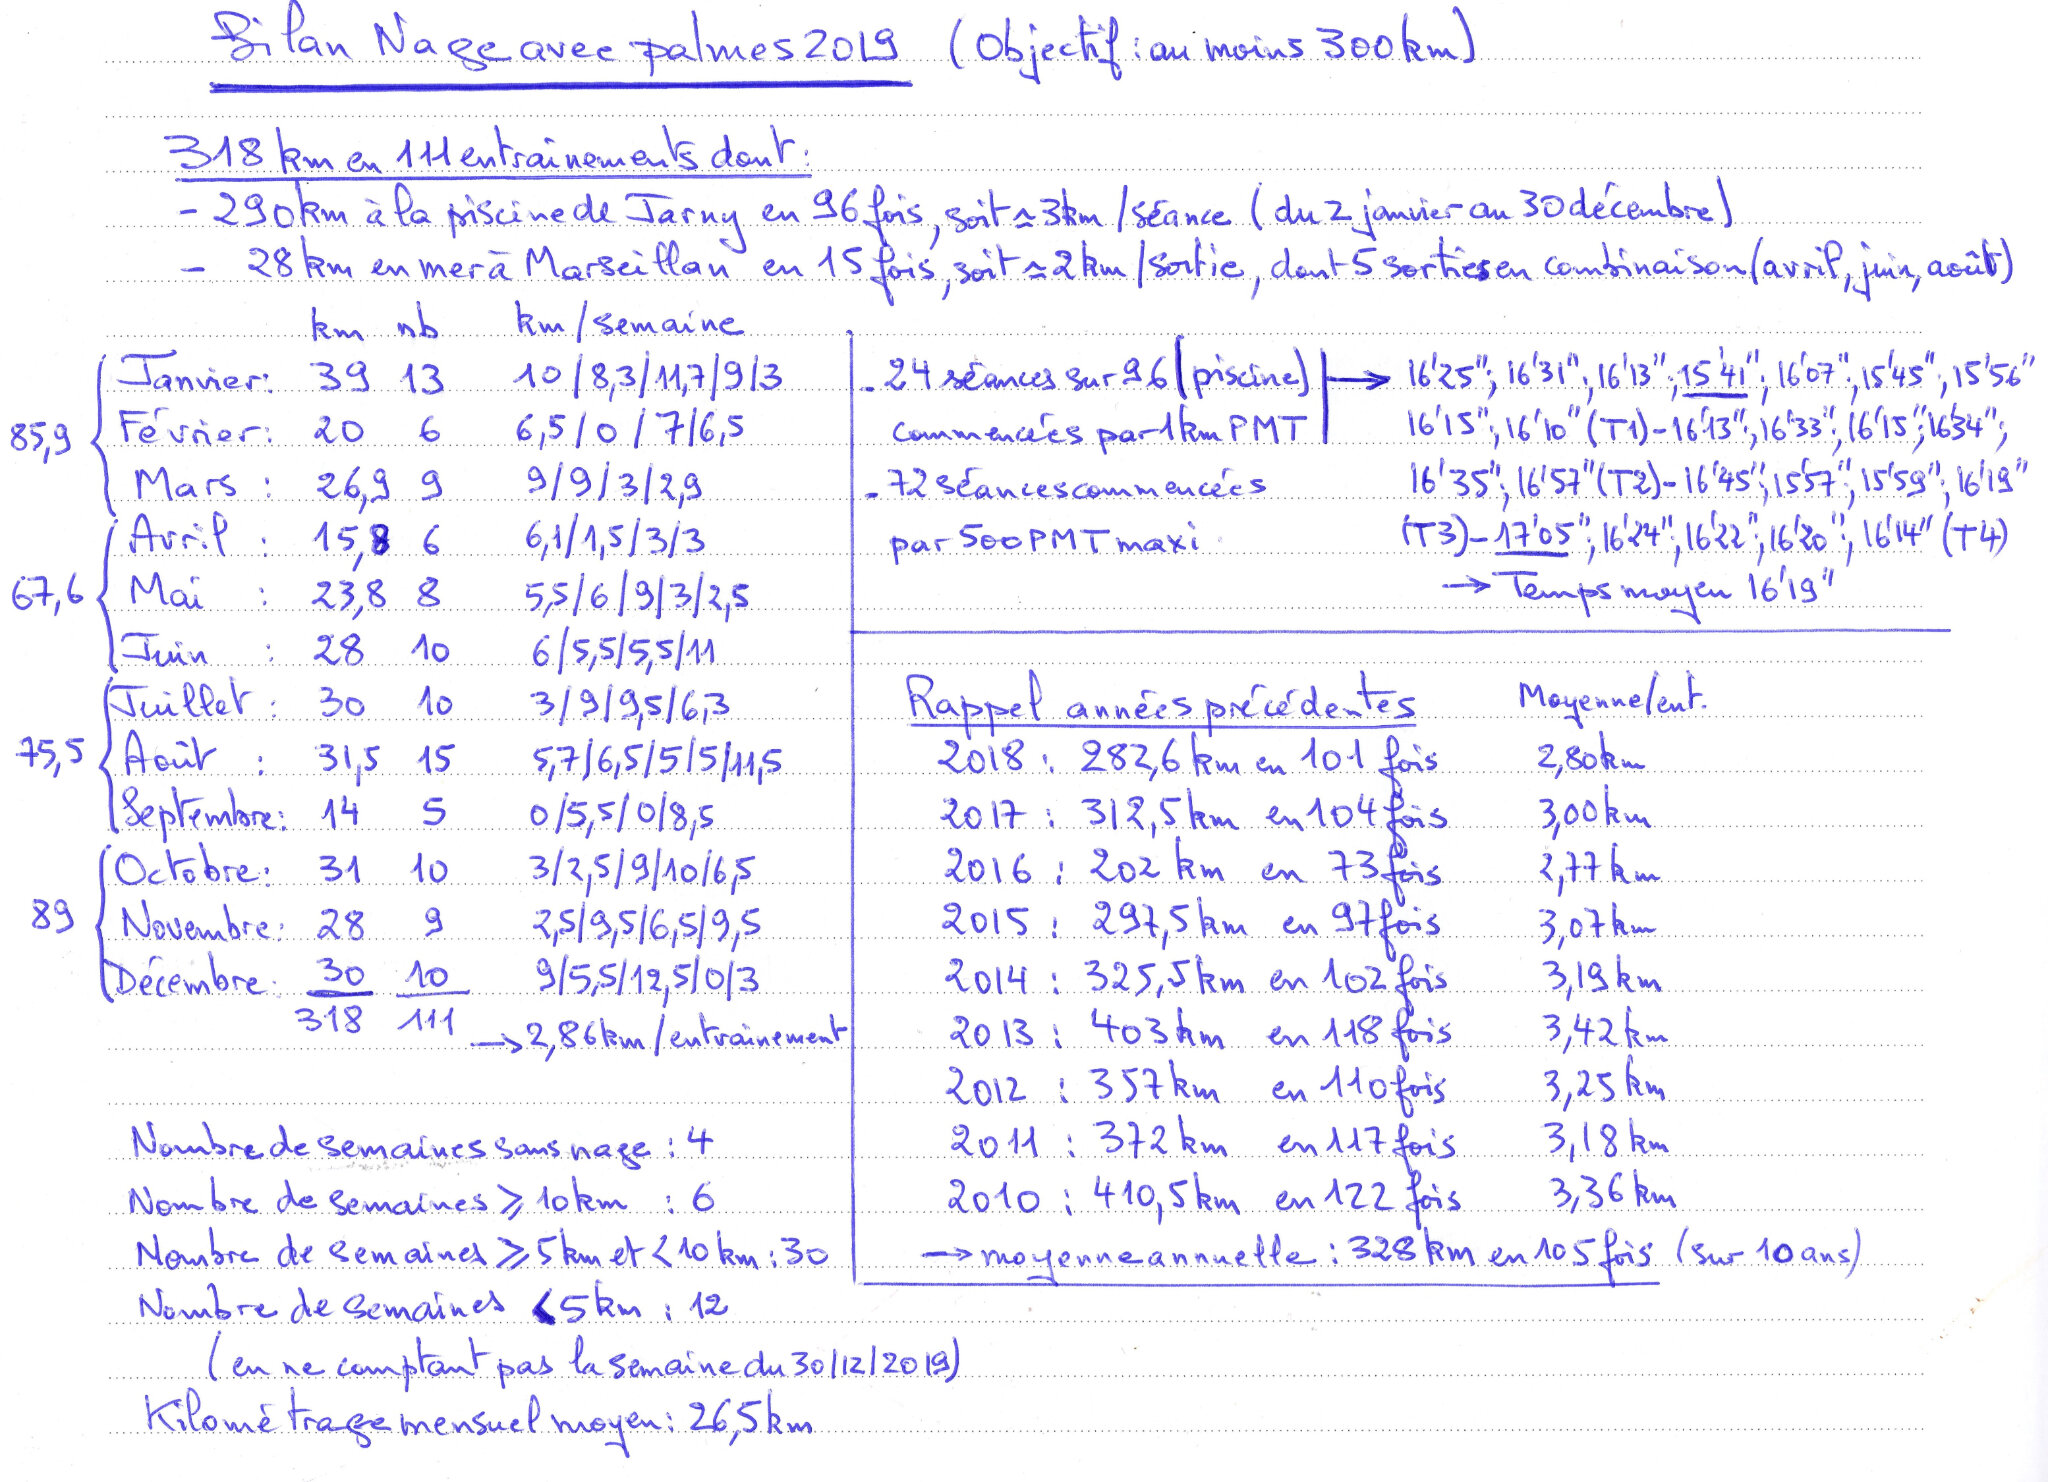 Bilan Nage avec palmes 2019 (Objectif : au moins 300 km)
318 km en 111 entraînements dont :
- 290 km à la piscine de Jarny en 96 fois, soit ≃ 3 km / séance (du 2 janvier au 30 décembre)
- 28 km en mer à Marseillan en 15 fois, soit ≃ 2 km / sortie, dont 5 sorties en combinaison (avril, juin, août)
km nb km / semaine
85,9
Janvier : 39 13 10 / 8,3 / 11,7 / 9 / 3
Février : 20 6 6,5 / 0 / 7 / 6,5
Mars : 26,9 9 9 / 9 / 3 / 2,9
67,6
Avril : 15,8 6 6,1 / 1,5 / 3 / 3
Mai : 23,8 8 5,5 / 6 / 9 / 3 / 2,5
Juin : 28 10 6 / 5,5 / 5,5 / 11
75,5
Juillet : 30 10 3 / 9 / 9,5 / 6,3
Août : 31,5 15 5,7 / 6,5 / 5 / 5 / 11,5
Septembre : 14 5 0 / 5,5 / 0 / 8,5
89
Octobre : 31 10 3 / 2,5 / 9 / 10 / 6,5
Novembre : 28 9 2,5 / 9,5 / 6,5 / 9,5
Décembre : 30 10 9 / 5,5 / 12,5 / 0 / 3
318 111 → 2,86 km / entraînement
Nombre de semaines sans nage : 4
Nombre de semaines ⩾ 10 km : 6
Nombre de semaines ⩾ 5 km et < 10 km : 30
Nombre de semaines < 5 km : 12
(en ne comptant pas la semaine du 30/12/2019)
Kilométrage mensuel moyen : 26,5 km
- 24 séances sur 96 (piscine)
commencées par 1 km PMT
- 72 séances commencées
par 500 PMT maxi
→ 16'25" ; 16'31" ; 16'13" ; 15'41" ; 16'07" ; 15'45" ; 15'56"
16'15" ; 16'10" (T1) - 16'13" ; 16'33" ; 16'15" ; 16'34" ;
16'35" ; 16'57" (T2) - 16'45" ; 15'57" ; 15'59" ; 16'19"
(T3) - 17'05" ; 16'24" ; 16'22" ; 16'20" ; 16'14" (T4)
→ Temps moyen 16'19"
Rappel années précédentes Moyenne/ent.
2018 : 282,6 km en 101 fois 2,80 km
2017 : 312,5 km en 104 fois 3,00 km
2016 : 202 km en 73 fois 2,77 km
2015 : 297,5 km en 97 fois 3,07 km
2014 : 325,5 km en 102 fois 3,19 km
2013 : 403 km en 118 fois 3,42 km
2012 : 357 km en 110 fois 3,25 km
2011 : 372 km en 117 fois 3,18 km
2010 : 410,5 km en 122 fois 3,36 km
→ moyenne annuelle : 328 km en 105 fois (sur 10 ans)